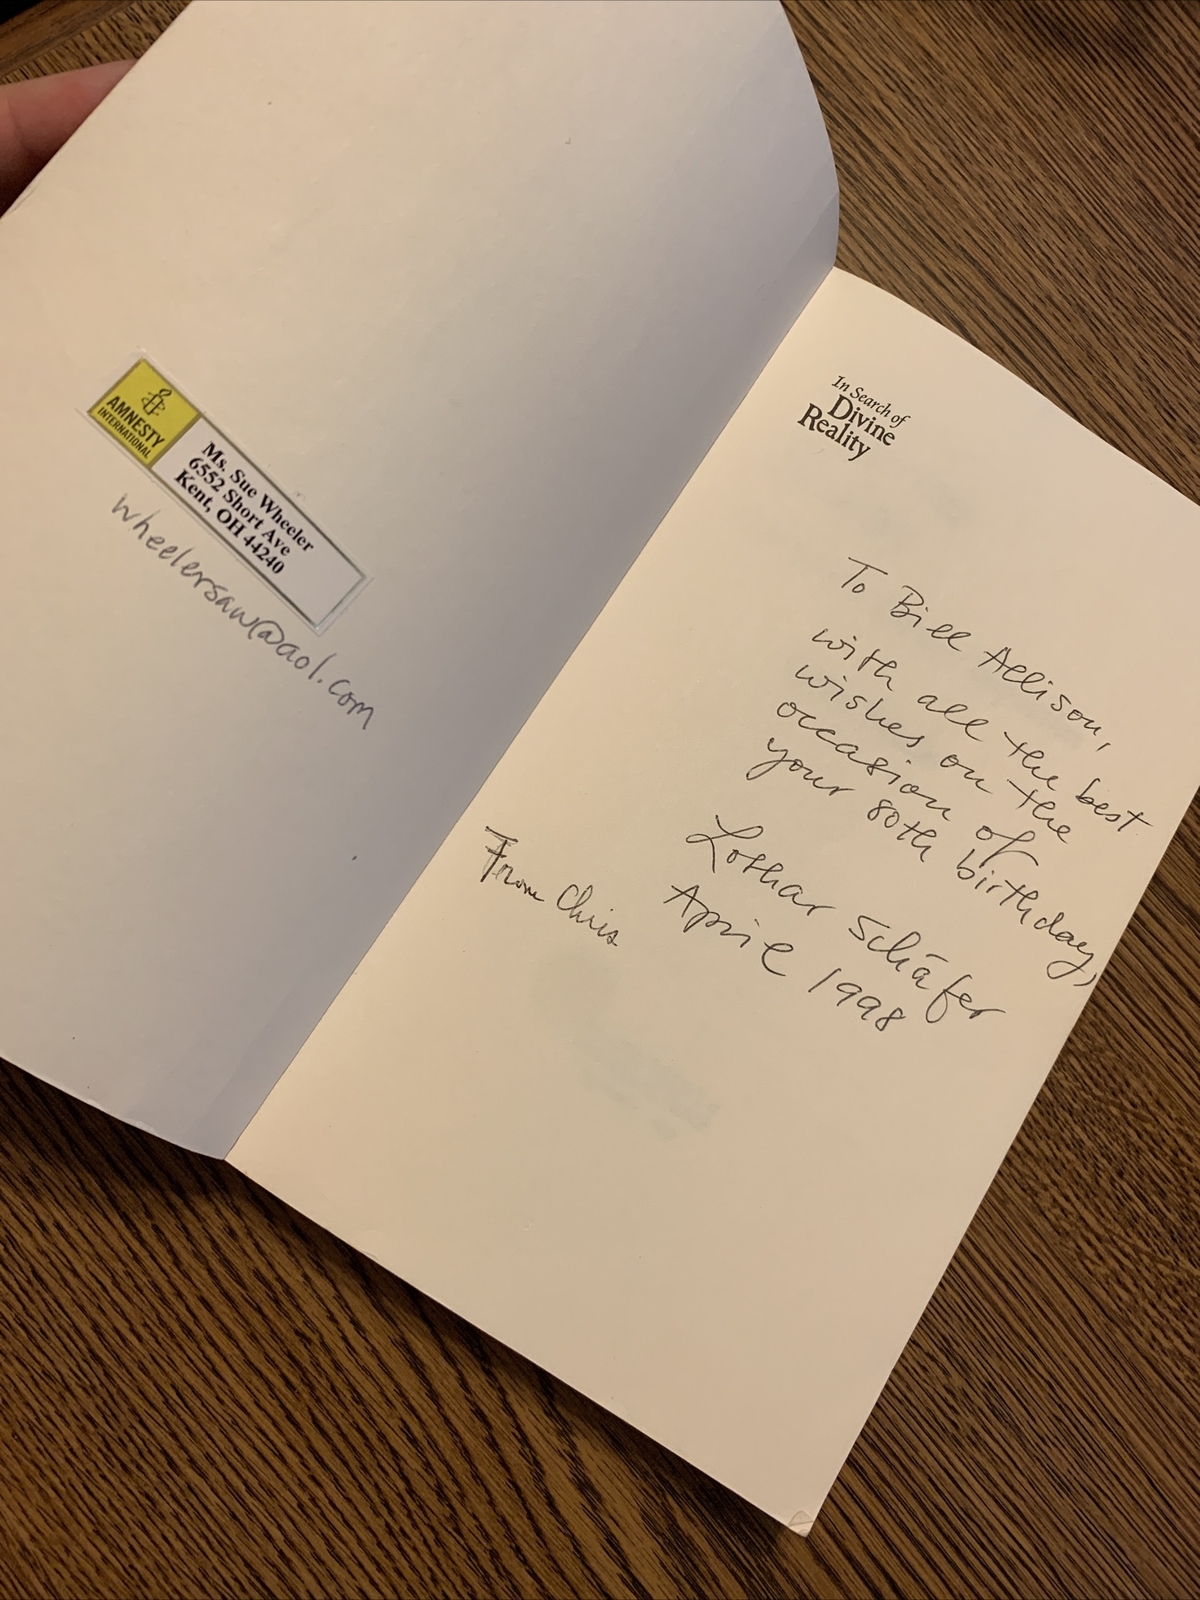 AMNESTY
INTERNATIONAL
Ms. Sue Wheeler
6552 Short Ave
Kent, OH 44240
wheelersaw@aol.com
In Search of
Divine
Reality
To Bill Allison,
with all the best
wishes on the
occasion of
your 80th birthday,
Lothar Schäfer
April 1998
From Chris